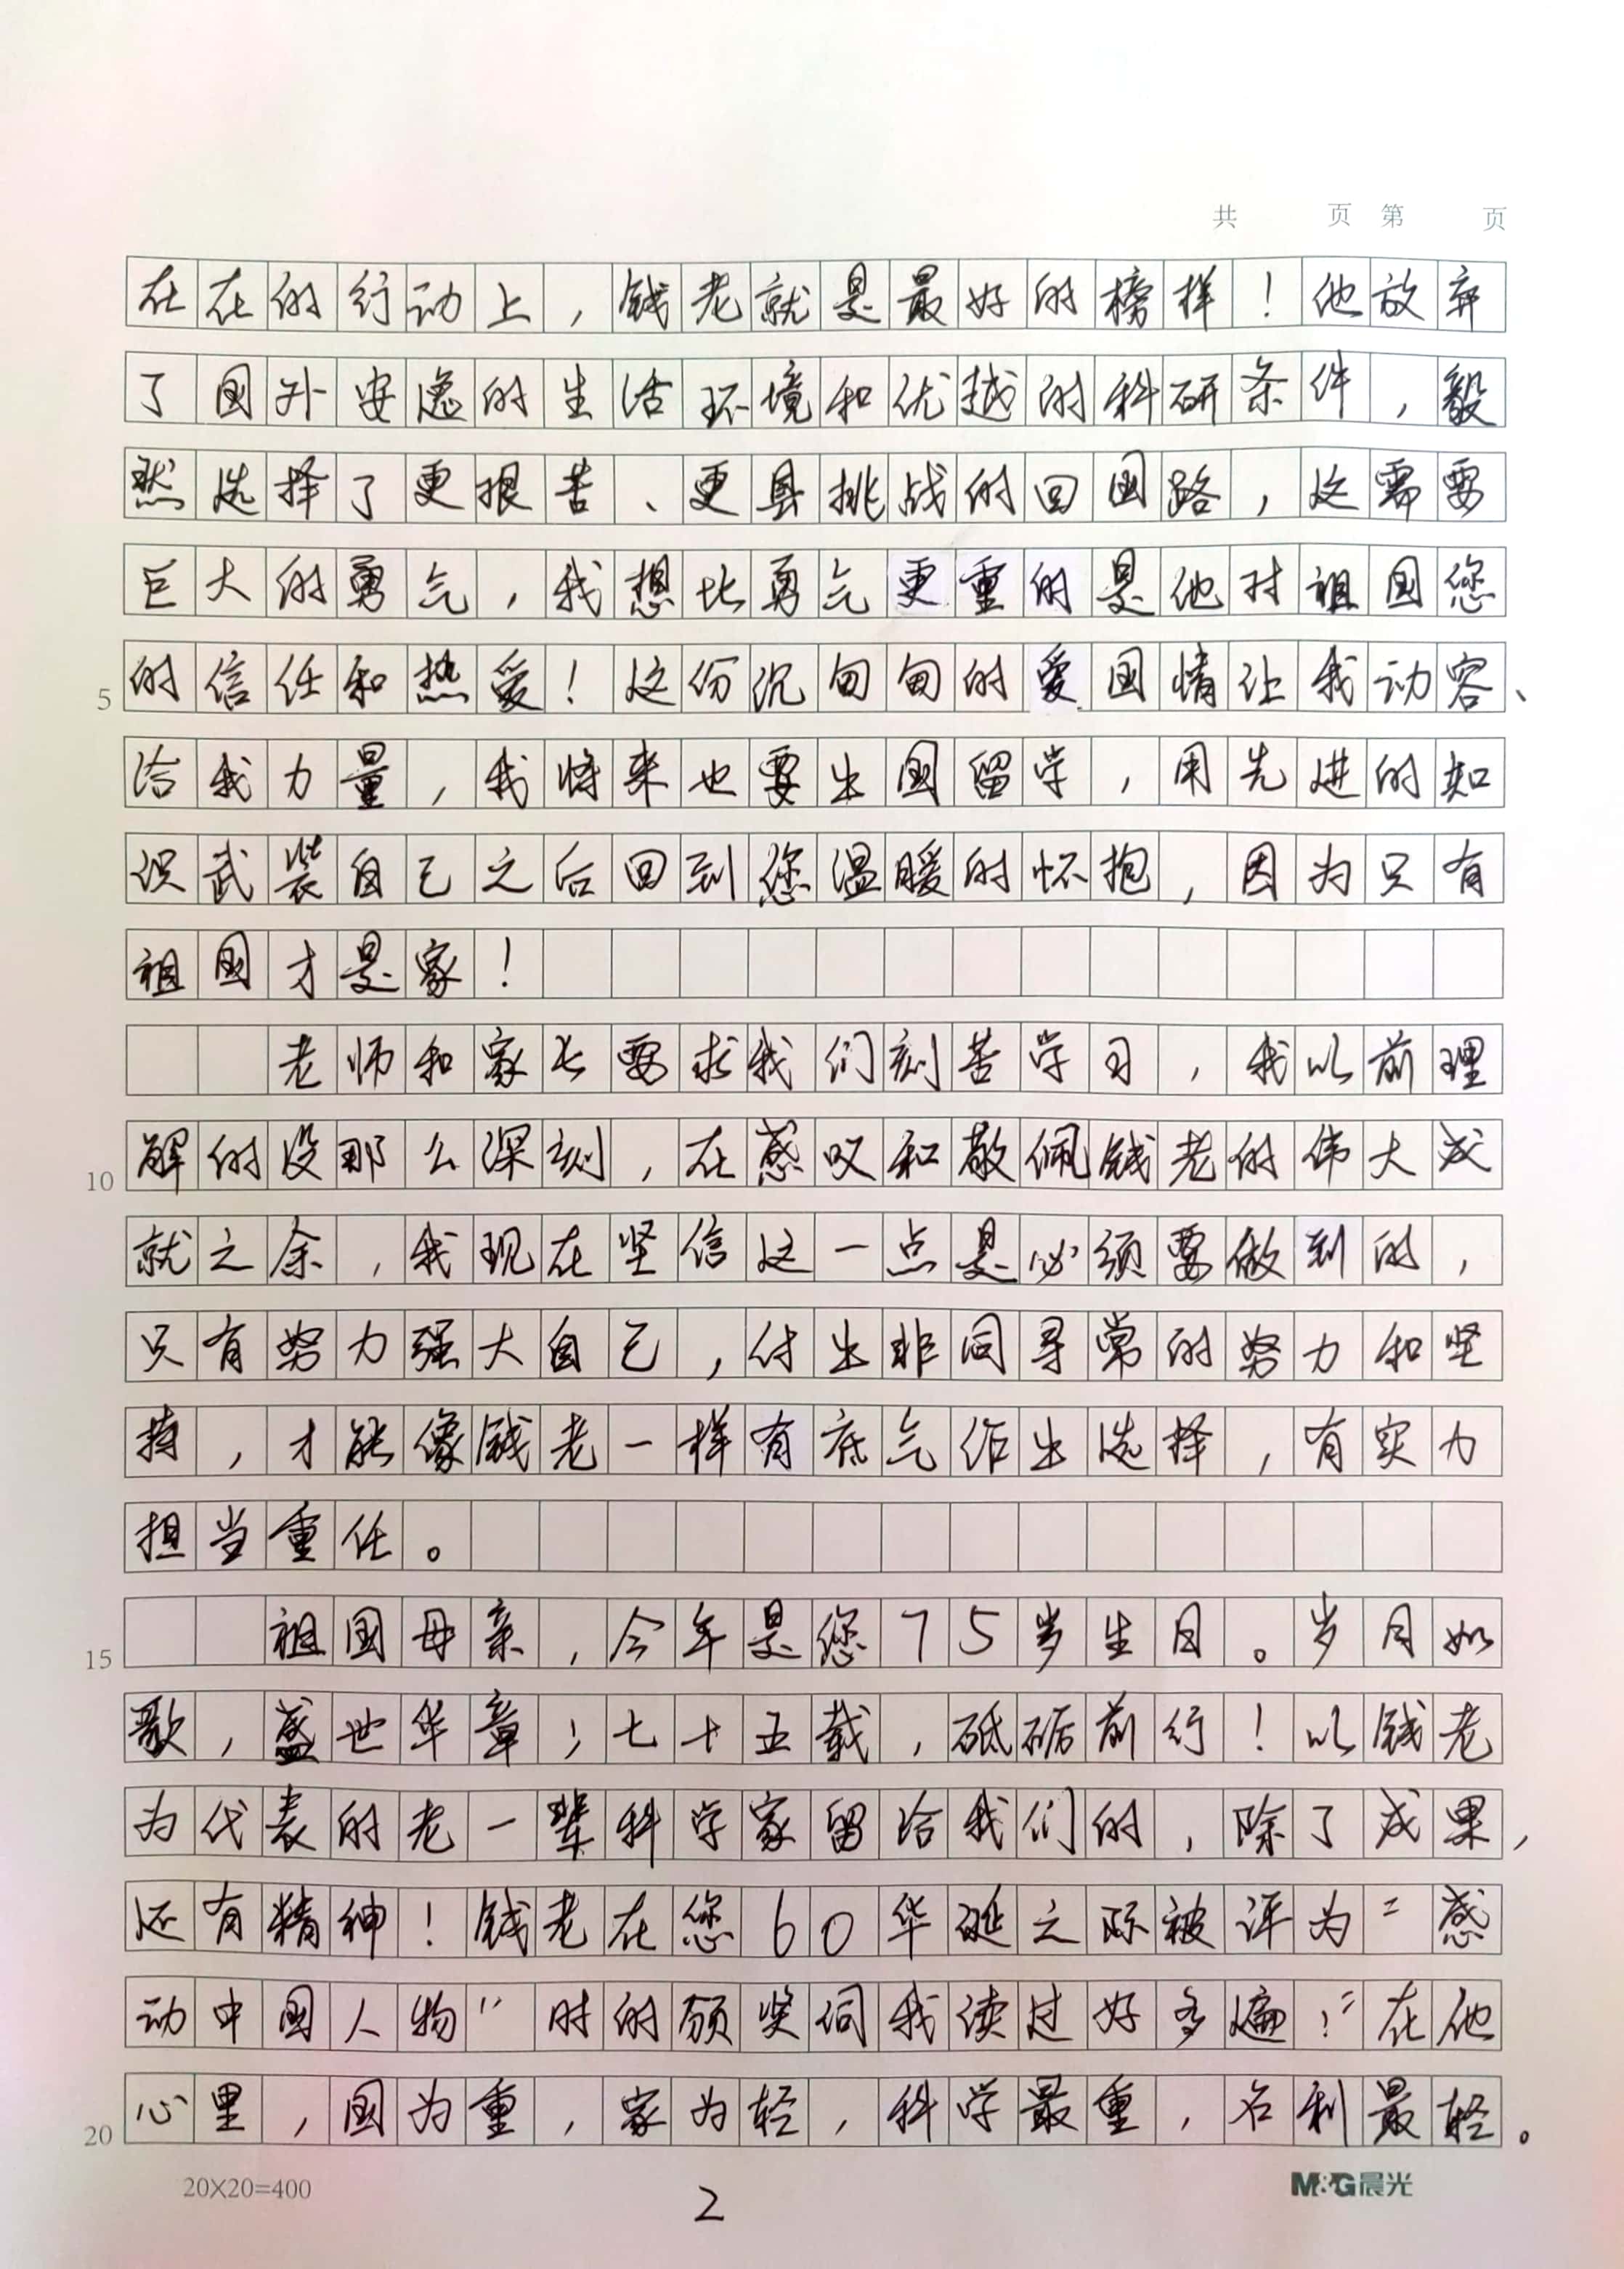 共 页 第 页
在在的行动上，钱老就是最好的榜样！他放弃
了国外安逸的生活环境和优越的科研条件，毅
然选择了更艰苦、更具挑战的回国路，这需要
巨大的勇气，我想比勇气更重的是他对祖国您
的信任和热爱！这份沉甸甸的爱国情让我动容、
给我力量，我将来也要出国留学，用先进的知
识武装自己之后回到您温暖的怀抱，因为只有
祖国才是家！
老师和家长要求我们刻苦学习，我以前理
解的没那么深刻，在感叹和敬佩钱老的伟大成
就之余，我现在坚信这一点是必须要做到的，
只有努力强大自己，付出非同寻常的努力和坚
持，才能像钱老一样有底气作出选择，有实力
担当重任。
祖国母亲，今年是您75岁生日。岁月如
歌，盛世华章；七十五载，砥砺前行！以钱老
为代表的老一辈科学家留给我们的，除了成果，
还有精神！钱老在您60华诞之际被评为“感
动中国人物”时的颁奖词我读过好多遍：“在他
心里，国为重，家为轻，科学最重，名利最轻。
5
10
15
20
20×20=400
2
M&G晨光